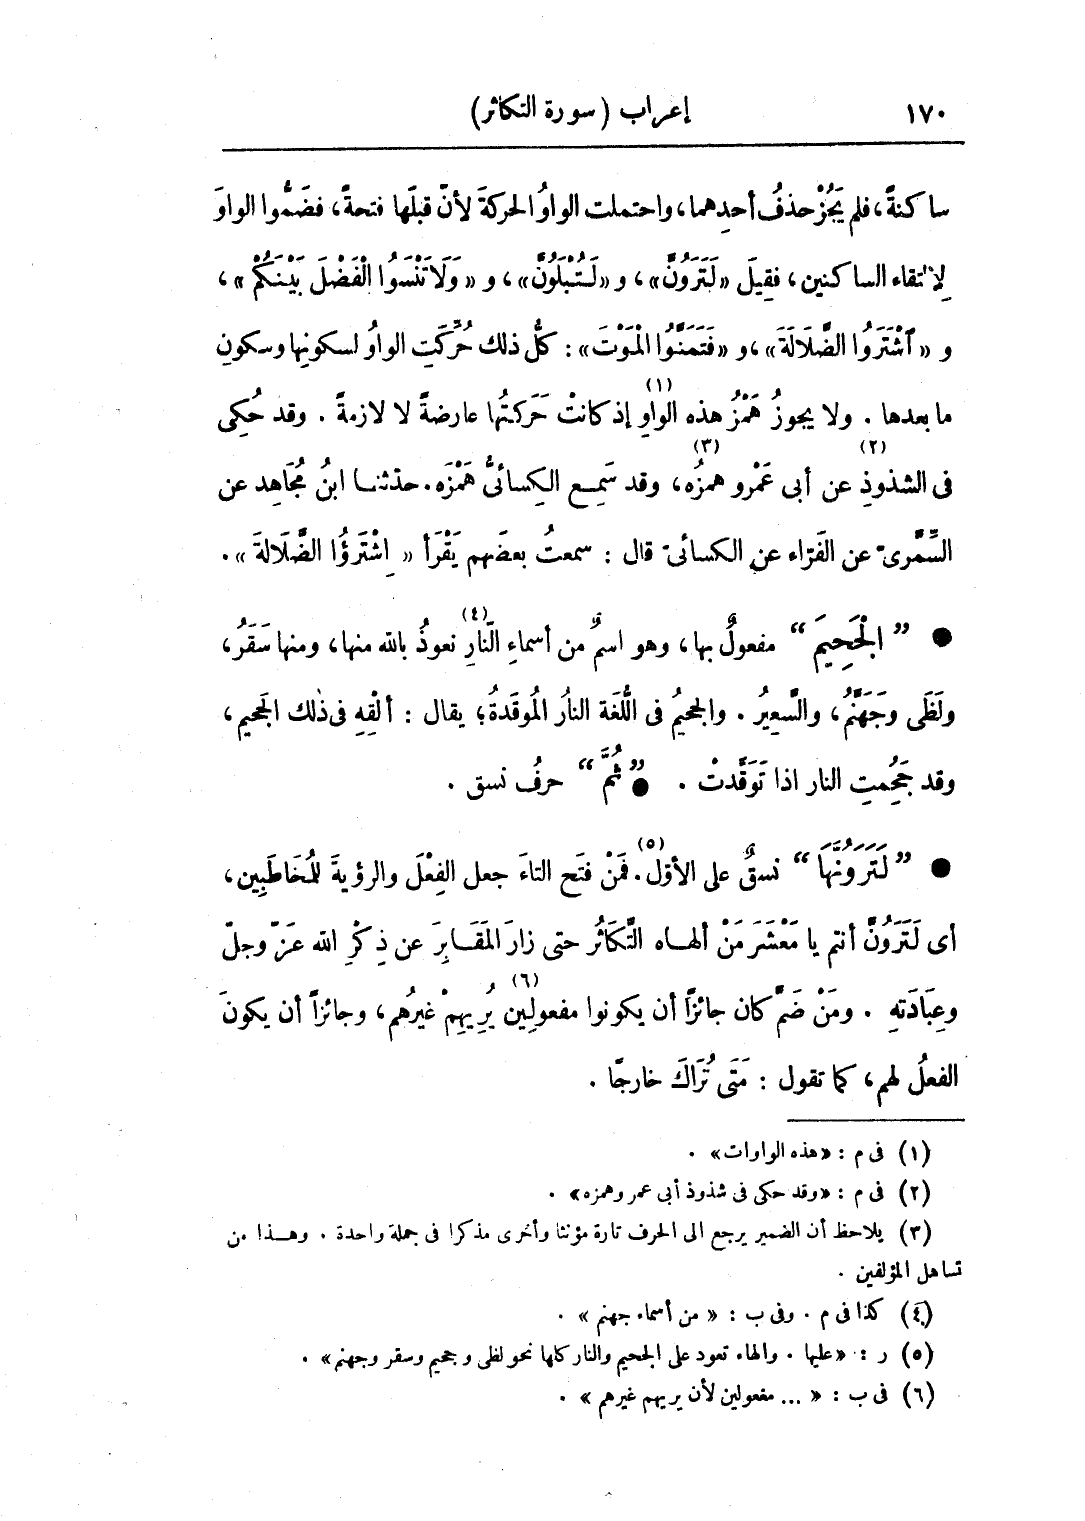 ١٧٠ إعراب (سورة التكاثر)
ساكنةً، فلم يَجُزْ حذفُ أحدِهما، واحتملت الواوُ الحركةَ لأنّ قبلَها فتحةً، فضَمُّوا الواوَ
لِالتقاء الساكنين، فقِيلَ «لَتَرَوُنَّ»، و«لَتُبْلَوُنَّ»، و «وَلَا تَنْسَوُا الْفَضْلَ بَيْنَكُمْ»،
و «ٱشْتَرَوُا الضَّلَالَةَ»، و «فَتَمَنَّوُا الْمَوْتَ»: كلُّ ذلك حُرِّكَتِ الواوُ لسكونِها وسكونِ
ما بعدها . ولا يجوزُ هَمْزُ هذه الواوِ (١) إذ كانتْ حَرَكتُها عارضةً لا لازمةً . وقد حُكِى
فى الشذوذِ (٢) عن أبى عَمْرو همزُه (٣)، وقد سَمِـع الكِسائىُّ هَمْزَه. حدّثنـا ابنُ مُجَاهِد عن
السِّمَّرىّ عن الفَرّاء عن الكسائىّ قال : سمعتُ بعضَهم يَقْرَأ « اِشْتَرَؤُا الضَّلَالةَ ».
● ” الْجَحِيمَ “ مفعولٌ بها، وهو اسمٌ من أسماءِ النّارِ (٤) نعوذُ بالله منها، ومنها سَقَرُ،
ولَظَى وجَهَنَّمُ، والسَّعِيرُ . والجحيمُ فى اللُّغة النارُ المُوقَدةُ؛ يقال : ألْقِهِ فى ذٰلك الجَحيم،
وقد جَحُمتِ النار اذا تَوَقَّدتْ . ● ” ثُمَّ “ حرفُ نسق .
● ” لَتَرَوُنَّهَا “ نسقٌ على الأوّل (٥). فَمَنْ فتَح التاءَ جعل الفِعْلَ والرؤيةَ للمُخَاطَبِين،
أى لَتَرَوُنَّ أنتم يا مَعْشَرَ مَنْ ألهـاه التَّكَاثُر حتى زارَ المَقَـابِرَ عن ذِكْرِ الله عَزّ وجلّ
وعِبَادَتهِ . ومَنْ ضَمَّ كان جائزًا أن يكونوا مفعولِين (٦) يُرِيهِمْ غيرُهم، وجائزاً أن يكونَ
الفعلُ لهم، كما تقول : مَتَى تُرَاكَ خارجًا .
(١) فى م : «هذه الواوات» .
(٢) فى م : «وقد حكى فى شذوذ أبى عمر وهمزه» .
(٣) يلاحظ أن الضمير يرجع الى الحرف تارة مؤنثا وأخرى مذكرا فى جملة واحدة . وهـذا من
تساهل المؤلفين .
(٤) كذا فى م . وفى ب : « من أسماء جهنم » .
(٥) ر : «عليها . والهاء تعود على الجحيم والنار كلها نحو لظى وجحيم وسقر وجهنم» .
(٦) فى ب : « ... مفعولين لأن يريهم غيرهم » .